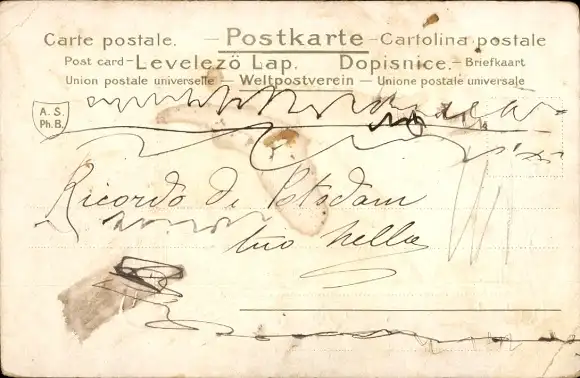 Carte postale. — Postkarte — Cartolina postale
Post card — Levelező Lap. Dopisnice. — Briefkaart
Union postale universelle — Weltpostverein — Unione postale universale
A. S.
Ph. B.
Ricordo di Potsdam
tuo Nello